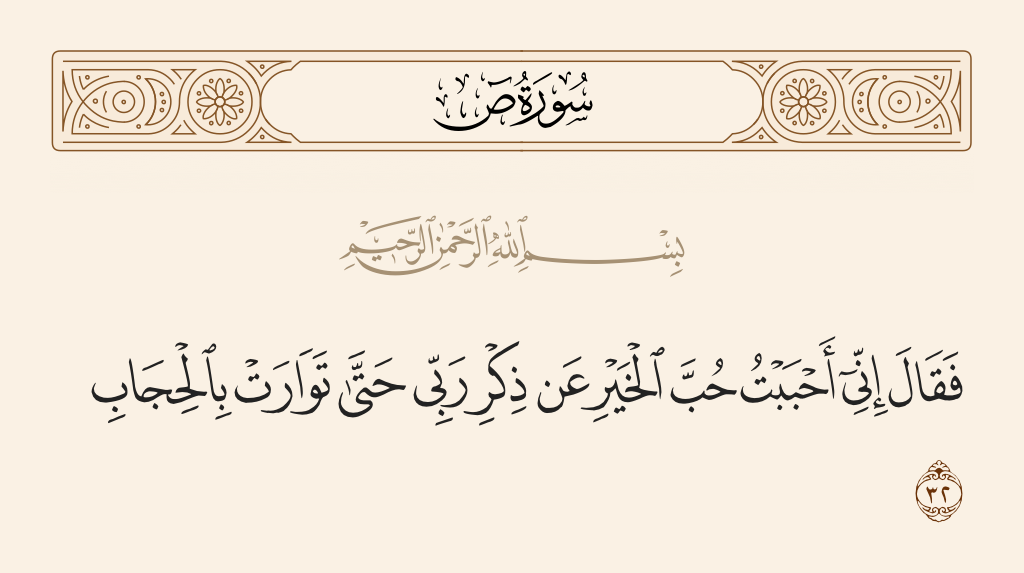 سُورَةُ صٓ
بِسْمِ ٱللَّهِ ٱلرَّحْمَٰنِ ٱلرَّحِيمِ
فَقَالَ إِنِّىٓ أَحْبَبْتُ حُبَّ ٱلْخَيْرِ عَن ذِكْرِ رَبِّى حَتَّىٰ تَوَارَتْ بِٱلْحِجَابِ
٣٢